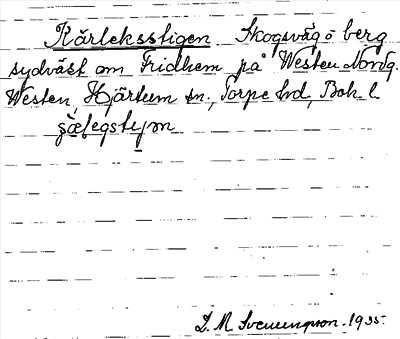 Kärleksstigen Skogsväg ö berg
sydväst om Fridhem på Westen Nordg.
Westen, Hjärtum sn., Torpe hd, Boh. l.
L. M. Svenungsson. 1935.